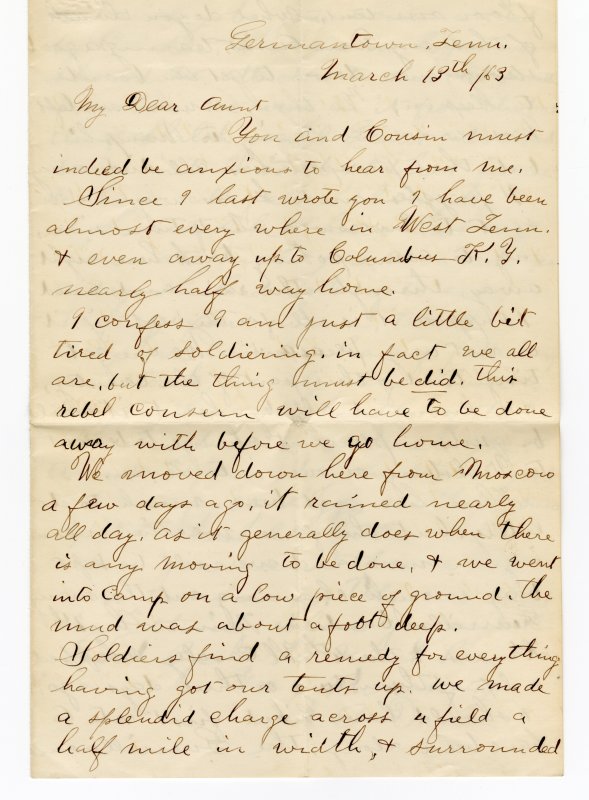 Germantown, Tenn.
March 13th /63
My Dear Aunt
You and Cousin must
indeed be anxious to hear from me.
Since I last wrote you I have been
almost every where in West Tenn.
& even away up to Columbus K.Y.
nearly half way home.
I confess I am just a little bit
tired of soldiering. in fact we all
are, but the thing must be did. this
rebel consern will have to be done
away with before we go home.
We moved down here from Moscow
a few days ago, it rained nearly
all day, as it generally does when there
is any moving to be done, & we went
into camp on a low piece of ground. the
mud was about a foot deep.
Soldiers find a remedy for everything
having got our tents up. we made
a splendid charge across a field a
half mile in width, & surrounded